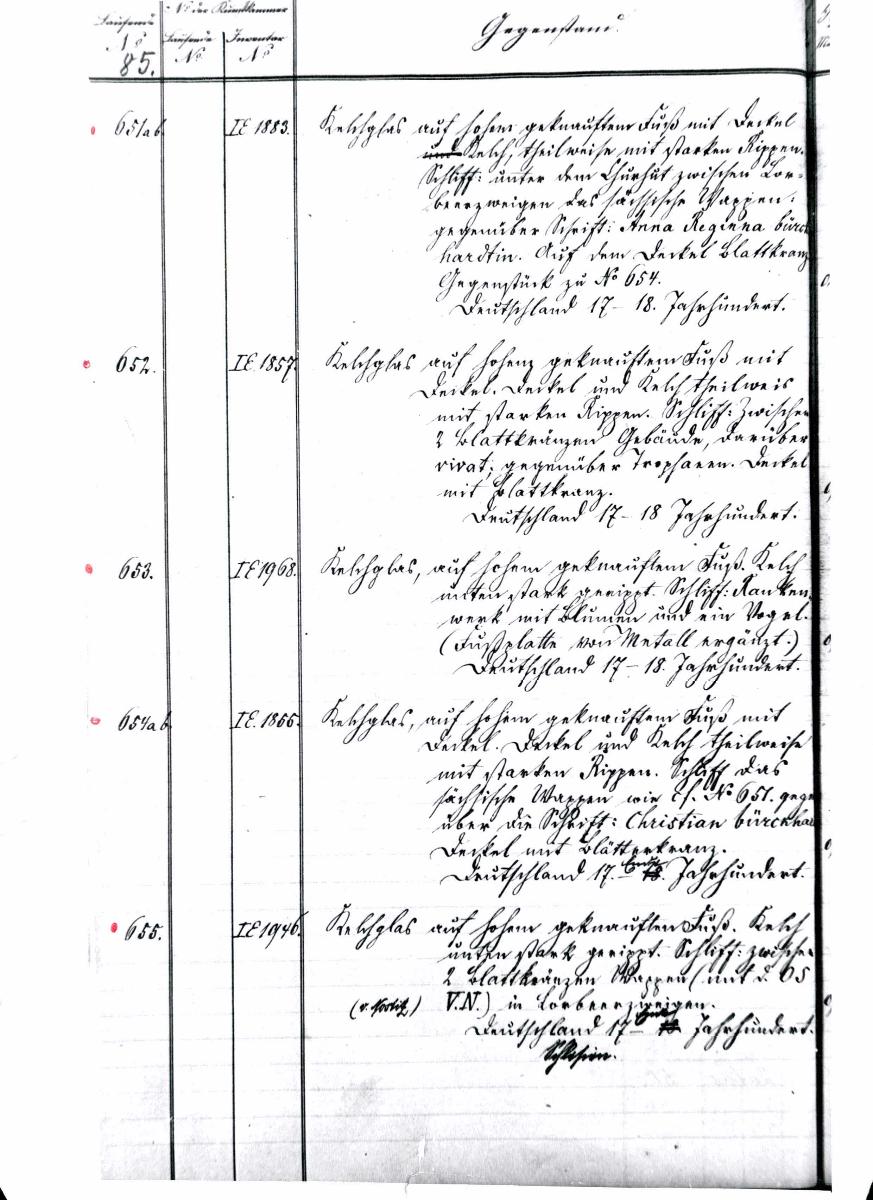 Laufende No 85.
No der Kunstkammer
Laufende No.
Inventar No
Gegenstand.
651ab. IE 1883. Kelchglas auf hohem geknauftem Fuß mit Deckel
und Kelch, theilweise mit starken Rippen.
Schliff: unter dem Churhut zwischen Lor-
beerzweigen das sächsische Wappen:
gegenüber Schrift: Anna Reginna bürck
hardtin. Auf dem Deckel Blattkranz
Gegenstück zu No 654.
Deutschland 17 – 18. Jahrhundert.
652. IE 1857. Kelchglas auf hohem geknauftem Fuß mit
Deckel. Deckel und Kelch theilweis
mit starken Rippen. Schliff: Zwischen
2 Blattkränzen Gebäude, darüber
vivat; gegenüber Trophaeen. Deckel
mit Blattkranz.
Deutschland 17 – 18 Jahrhundert.
653. IE 1968. Kelchglas, auf hohem geknauftem Fuß. Kelch
unten stark gerippt. Schliff: Ranken
werk mit Blumen und ein Vogel.
(Fußplatte von Metall ergänzt.)
Deutschland 17 – 18. Jahrhundert.
654ab. IE. 1855. Kelchglas, auf hohem geknauftem Fuß mit
Deckel. Deckel und Kelch theilweise
mit starken Rippen. Schliff das
sächsische Wappen wie cf. No 651. gegen
über die Schrift: Christian bürckha
Deckel mit Blätterkranz.
Deutschland 17. – Ende 18. Jahrhundert.
655. IE 1946. Kelchglas auf hohem geknauften Fuß. Kelch
unten stark gerippt. Schliff: zwischen
2 Blattkränzen Wappen (mit d. 65
(v. Nostitz) V.N.) in Lorbeerzweigen.
Deutschland 17 – Ende 18 Jahrhundert.
Schlesien.